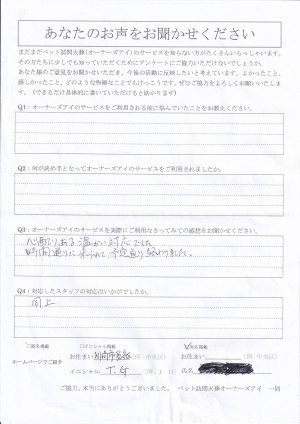 あなたのお声をお聞かせください
まだまだペット訪問火葬(オーナーズアイ)のサービスを知らない方がたくさんいらっしゃいます。
その方たちに少しでも知っていただくためにアンケートにご協力いただけないでしょうか。
あなた様のご意見をお聞かせいただき、今後の活動に反映したいと考えています。よかったこと、
嬉しかったこと、どのような些細なことでもけっこうです。ぜひご協力をよろしくお願いいたしま
す。(できるだけ具体的に書いていただけると助かります)
Q1:オーナーズアイのサービスをご利用される前に悩んでいたことをお教えください。
Q2:何が決め手となってオーナーズアイのサービスをご利用されましたか。
Q3:オーナーズアイのサービスを実際にご利用なさってみての感想をお聞かせください。
心遣いある温かい対応でした
時間通りに 予定通り
Q4:対応したスタッフの対応はいかがでしたか。
同上
□イニシャル掲載
ホームページでご紹介
お住まい (例:中央区) お住まい (例:中央区)
イニシャル T.G (例:I.H) 氏名
ご協力、本当にありがとうございました。 ペット訪問火葬オーナーズアイ 一同